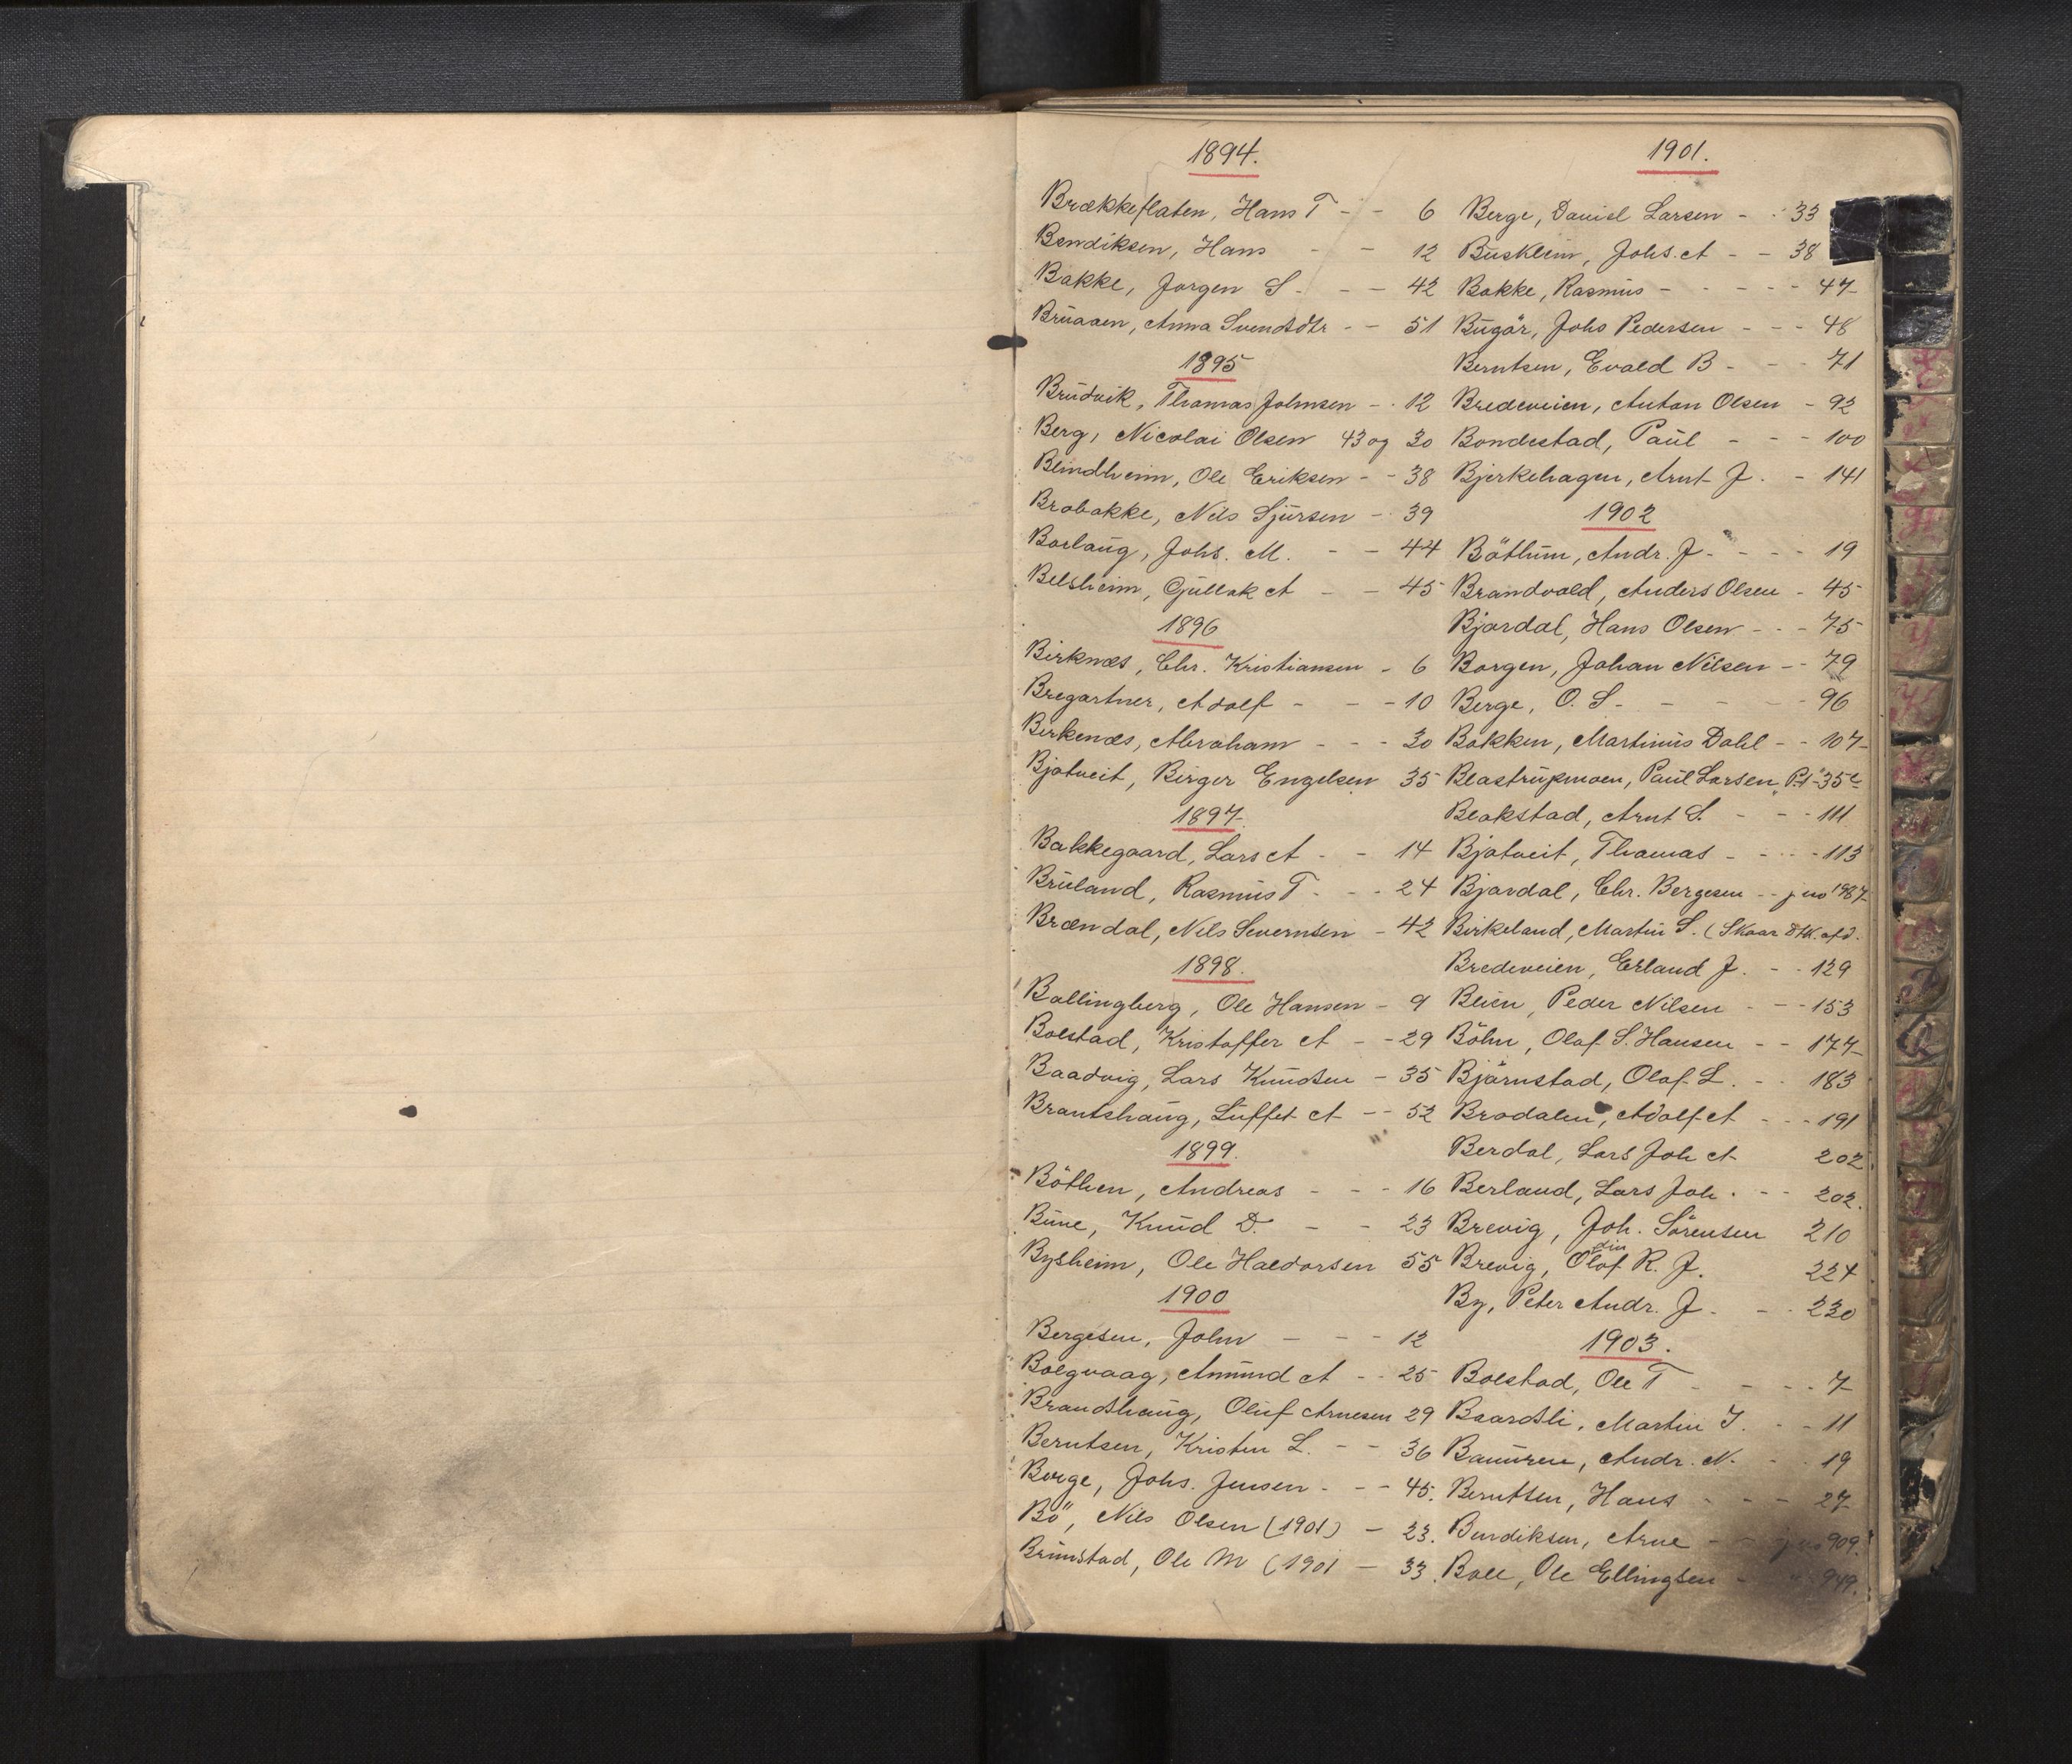 1894.
Brækkeflaten, Hans T - - 6
Bendiksen, Hans - - 12
Bakke, Jørgen S. - - 42
Bruaaen, Anna Svendsdtr - - 51
1895
Brudvik, Thomas Johnsen - - 12
Berg, Nicolai Olsen 43 og 30
Blindheim, Ole Eriksen - - 38
Brobakke, Nils Sjursen - 39
Borlaug, Johs. M. - - 44
Belsheim, Gullak A - - 45
1896
Birknæs, Chr. Kristiansen - 6
Bregartner, Adolf - - - 10
Birkenæs, Abraham - - - 30
Bjotveit, Birger Engelsen 35
1897
Bakkegaard, Lars A - - 14
Bruland, Rasmus T. - - 24
Brændal, Nils Severinsen - 42
1898.
Ballingberg, Ole Hansen - 9
Bolstad, Kristoffer A - - 29
Baadvig, Lars Knudsen - 35
Brantshaug, Luffet A - - 52
1899.
Böthun, Andreas - - - 16
Bune, Knud D. - - 23
Bysheim, Ole Haldorsen 55
1900
Bergesen, John - - - 12
Bolgvaag, Amund A - - 25
Brandshaug, Oluf Arnesen 29
Berntsen, Kristen L. - - 36
Berge, Johs. Jensen - - - 45.
Bö, Nils Olsen (1901) - 23.
Brunstad, Ole M (1901 - 33.
1901.
Berge, Daniel Larsen - - 33
Busklein, Johs. A - - 38
Bakke, Rasmus - - - - - 47
Bugär, Johs Pedersen - - - 48
Berntsen, Evald B - - - 71
Bredeveien, Anton Olsen - 92
Bondestad, Paul - - - 100
Bjerkehagen, Arnt J. - 141
1902
Böthun, Andr. J. - - - 19
Brandvold, Anders Olsen - 45
Bjørdal, Hans Olsen - - - 75
Borgen, Johan Nilsen - - 79
Berge, O. S. - - - - 96
Bakken, Martinus Dahl - - 107
Blastrupmoen, Paul Larsen, P.A - 35
Blakstad, Arnt S. - - - 111
Bjotveit, Thomas - - - - 113
Bjørdal, Chr. Bergesen - - j no 1987
Birkeland, Martin S. (Skaar afd.
Bredeveien, Erland J. - - 129
Blien, Peder Nilsen - - - 153
Böhn, Olaf S. Hansen - - 177
Bjørnstad, Olaf L. - - 183
Brodalen, Adolf A - - - 191
Berdal, Lars Joh A 202
Berland, Lars Joh. - - 202.
Brevig, Joh. Sörensen 210
din
Brevig, Olaf R. J. 224
By, Peter Andr. J. - - 230
1903.
Bolstad, Ole T - - - - 7
Baardsli, Martin J. - - 11
Andr. N. - - 19
Berntsen, Hans - - - 27
Bendiksen, Arne - j no 909.
Boll, Ole Ellingsen - " 949.